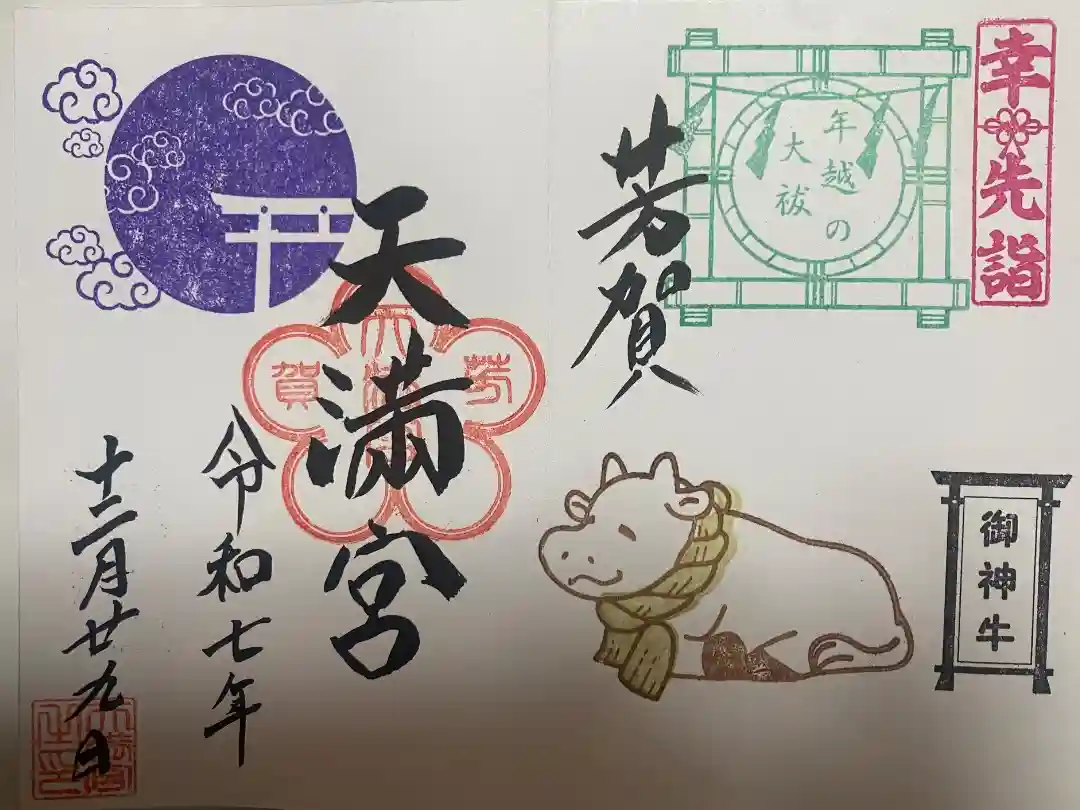 幸先詣
年越の
大祓
芳賀
天満宮
芳
賀
令和七年
十二月廿九日
御神牛